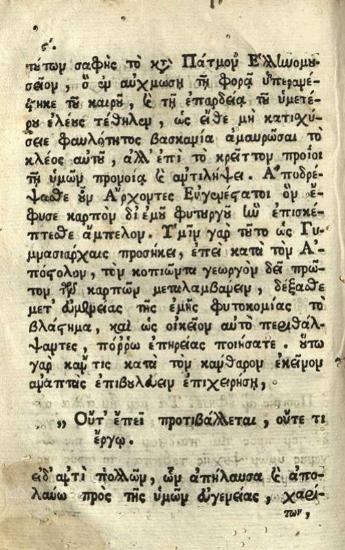 ϛ΄.
τούτων σαφὴς τὸ κτ̀ Πάτμον Ἑλλινομου-
σεῖον, ὃ ἐν αὐχμώσῃ τῇ φορᾷ ὑπεραψέ-
τηκε τοῦ καιροῦ, ϗ τῇ ἐπαρδείᾳ τοῦ ὑμετέ-
ρου ἐλέους τέθηλεν, ὡς εἴθε μὴ κατιχύ-
σειε φαυλότητος βασκανία ἀμαυρῶσαι τὸ
κλέος αὐτοῦ, ἀλλ' ἐπὶ τὸ κρεῖττον προΐοι
τῇ ὑμῶν προνοίᾳ ϗ ἀντιλήψει. Ἀποδρέ-
ψασθε οὖν Ἄρχοντες Εὐγενέστατοι ὃν ἔ-
φυσε καρπὸν δι' ἐμοῦ φυτουργοῦ ἣν ἐπισκέ-
πτεσθε ἄμπελον. Ὑμῖν γὰρ τοῦτο ὡς Γυ-
μνασιάρχαις προσήκει, ἐπεὶ κατὰ τὸν Ἀ-
πόστολον, τὸν κοπιῶντα γεωργὸν δεῖ πρῶ-
τον τῶν καρπῶν μεταλαμβάνειν, δέξασθε
μετ' εὐμενείας τῆς ἐμῆς φυτοκομίας τὸ
βλάστημα, καὶ ὡς οἰκεῖον αὐτὸ περιθάλ-
ψαντες, πόρρω ἐπηρείας ποιήσατε. οὕτω
γὰρ κἄν τις κατὰ τὸν κάνθαρον ἐκεῖνον
ἀνάπτας ἐπιβουλεύειν ἐπιχειρήσῃ,
„ Οὔτ' ἔπει προτιβάλλεται, οὔτε τι
ἔργῳ.
εἶδ' ἀντὶ πολλῶν, ὧν ἀπήλαυσα ϗ ἀπο-
λαύω πρὸς τῆς ὑμῶν εὐγενείας, χαρί-
των,